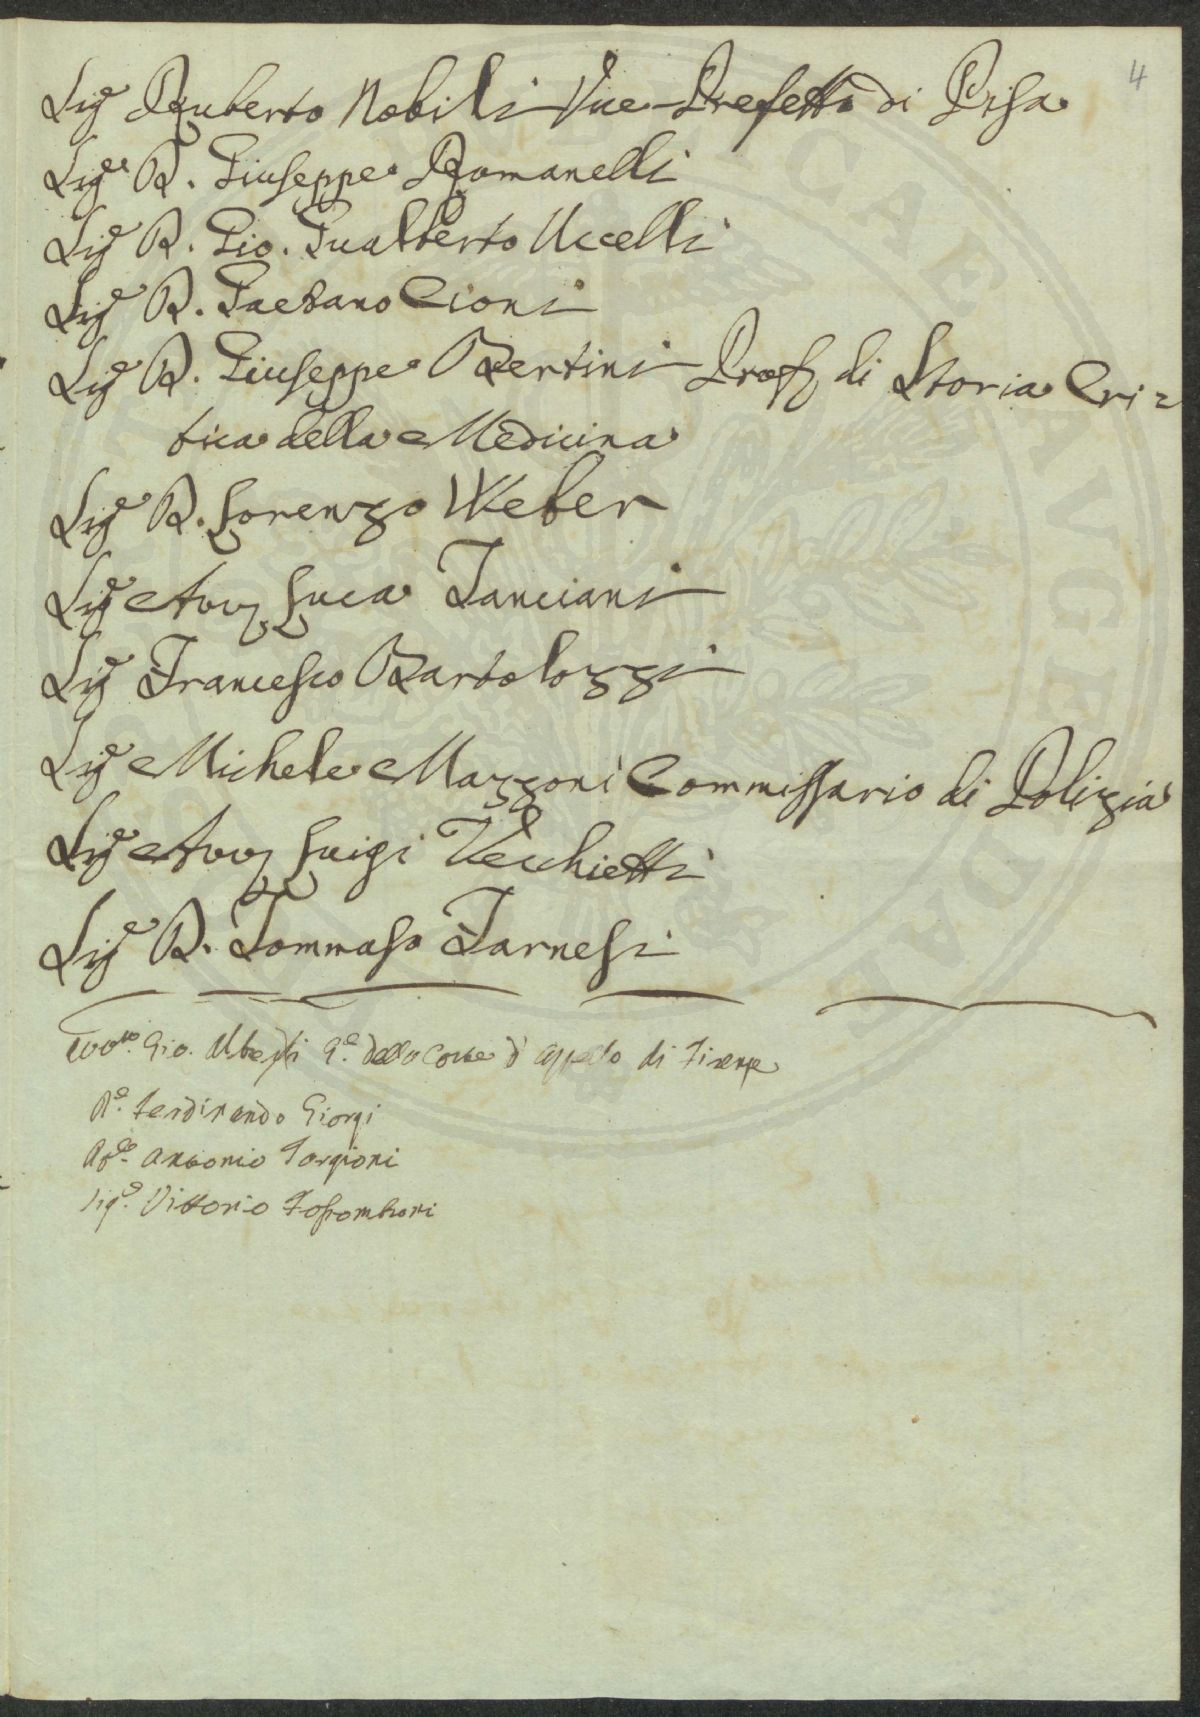 4
Sig.e Ruberto Nobili Vice-Prefetto di Pisa
Sig.e D. Giuseppe Romanelli
Sig.e D. Gio. Gualberto Uccelli
Sig.e D. Gaetano Cioni
Sig.e D. Giuseppe Bertini Prof.e di Storia Cri=
tica della Medicina
Sig.e D. Lorenzo Weber
Sig.e Avv. Luca Fanciani
Sig.e Francesco Bartolozzi
Sig.e Michele Mazzoni Commissario di Polizia
Sig.e Avv. Luigi Vecchietti
Sig.e D. Tommaso Farnesi
Gio. Alberti G.e della Corte d'appello di Firenze
D.e Ferdinando Giorgi
Antonio Targioni
Sig.e Vittorio Fossombroni